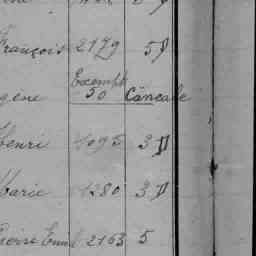 François 2179 5
Exempt
gène 50 Cancale
Henri 1095 3 D
Marie 1280 3 D
Pierre Emil 2163 5